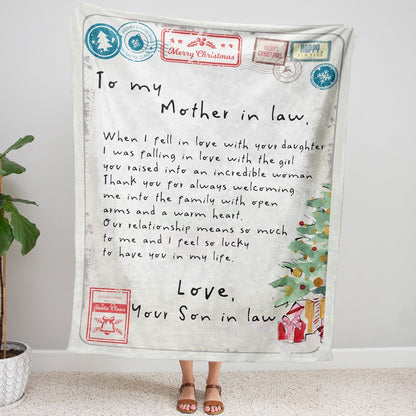 Merry Christmas
MERRY
CHRISTMAS
To my
Mother in law,
When I fell in love with your daughter
I was falling in love with the girl
you raised into an incredible woman
Thank you for always welcoming
me into the family with open
arms and a warm heart.
Our relationship means so much
to me and I feel so lucky
to have you in my life.
Love,
Your Son in law
Santa Claus